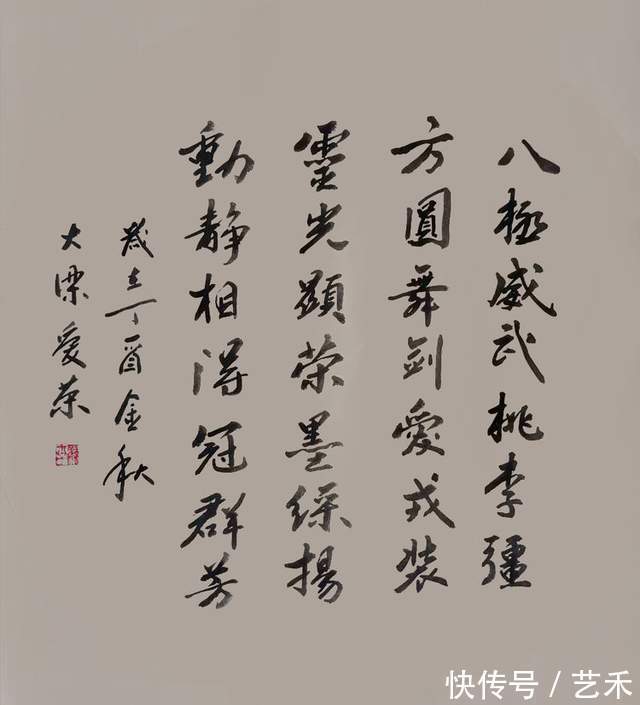 八極威武桃李疆
方圓舞劍愛戎裝
靈光顯榮墨綵揚
動靜相得冠群芳
歲在丁酉金秋
大梁愛榮
快传号 / 艺禾